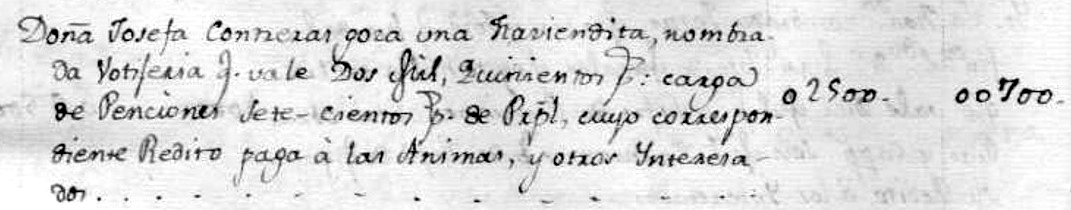 Doña Josefa Contreras goza una Haziendita, nombra-
da Votiferia q. vale Dos Mil, Quinientos p.s carga
de Penciones Sete-cientos p.s de Prpl, cuyo correspon- 02500. 00700.
diente Redito paga à las Animas, y otros Ynteresa-
dos . . . . . . . . . . . . .